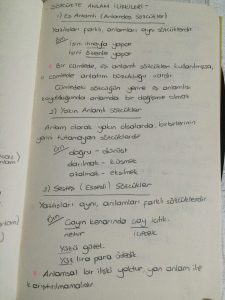 SÖZCÜKTE ANLAM İLİŞKİLERİ -
1) Eş Anlamlı (Anlamdaş Sözcükler)
Yazılışları farklı, anlamları aynı sözcüklerdir.
Örn
İşini itinayla yapar
İşini özenle yapar
* Bir cümlede, eş anlamlı sözcükler kullanılmışsa,
o cümlede anlatım bozukluğu vardır.
Cümledeki sözcüğün yerine eş anlamlısı
koyulduğunda anlamda bir değişme olmaz.
2) Yakın Anlamlı Sözcükler
Anlam olarak yakın olsalarda, birbirlerinin
yerini tutamayan sözcüklerdir.
Örn
doğru - dürüst
darılmak - küsmek
azalmak - eksilmek
3) Sesteş (Eşsesli) Sözcükler
Yazılışları aynı, anlamları farklı sözcüklerdir.
Örn
Çayın kenarında çay içtik.
nehir içecek
Yüzü güzel.
Yüz lira para ödedik
* Anlamsal bir ilişki yoktur, yan anlam ile
karıştırılmamalıdır.